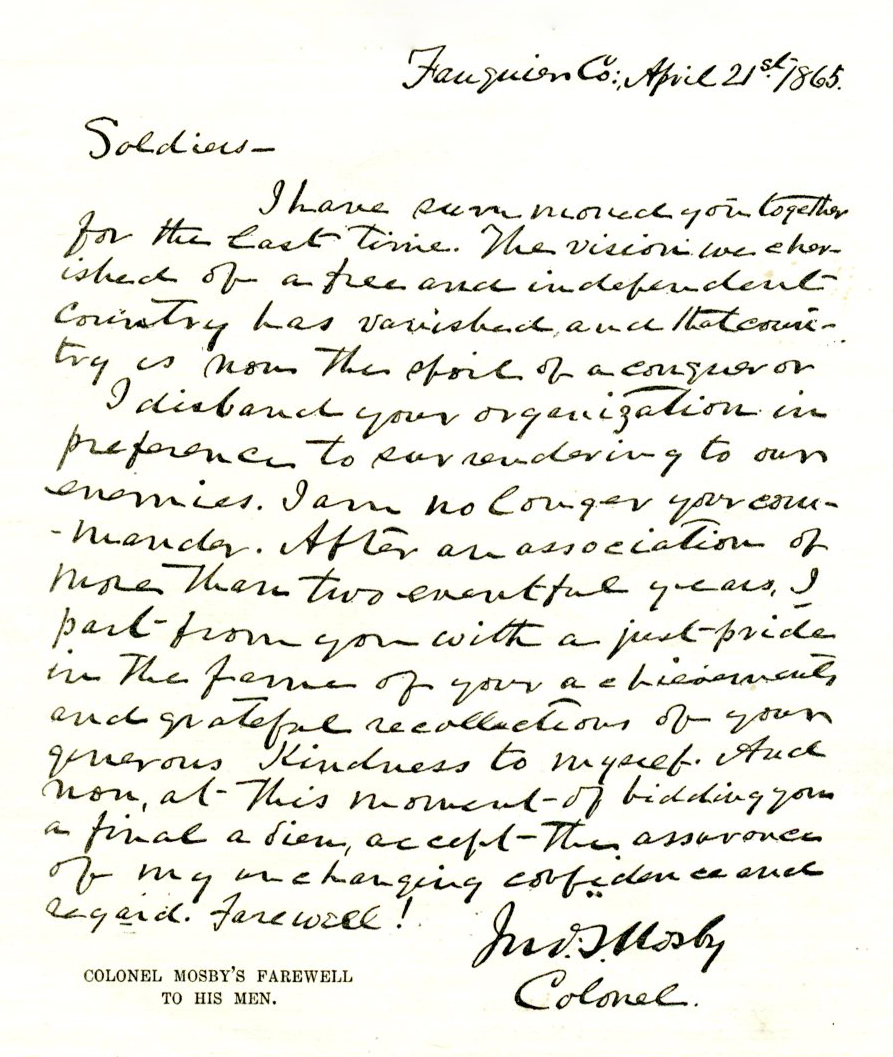 Fauquier Co:, April 21st/1865.
Soldiers—
I have summoned you together
for the last time. The vision we cher-
ished of a free and independent
country has vanished, and that coun-
try is now the spoil of a conqueror
I disband your organization in
preference to surrendering to our
enemies. I am no longer your com-
-mander. After an association of
more than two eventful years, I
part from you with a just pride
in the fame of your achievements
and grateful recollections of your
generous kindness to myself. And
now, at this moment of bidding you
a final adieu, accept the assurance
of my unchanging confidence and
regard. Farewell!
Jno. S. Mosby
Colonel.
COLONEL MOSBY'S FAREWELL
TO HIS MEN.